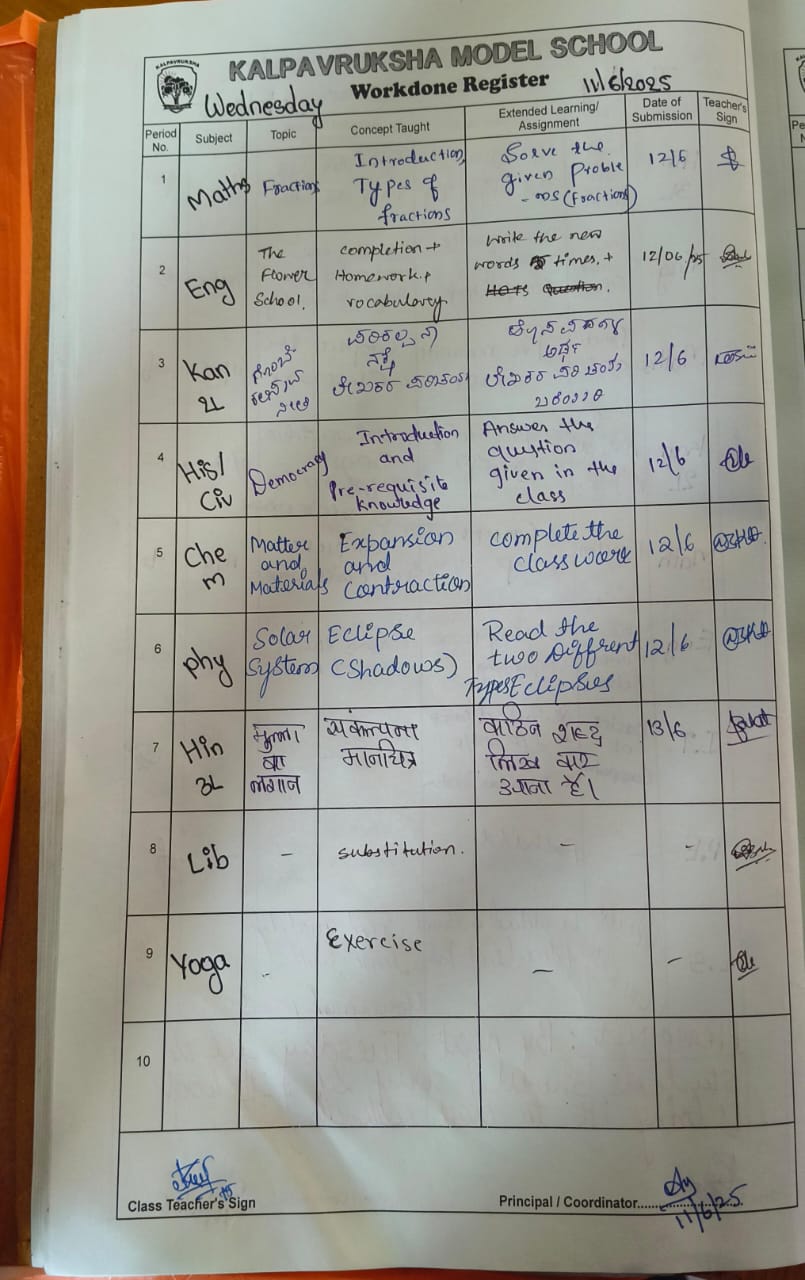 KALPAVRUKSHA
KALPAVRUKSHA MODEL SCHOOL
Wednesday Workdone Register 11/6/2025
Period No. Subject Topic Concept Taught Extended Learning/ Assignment Date of Submission Teacher's Sign
1 Maths Fractions Introduction, Types of fractions Solve the given Proble -ms (Fractions) 12/6
2 Eng The Flower School. completion + Homework + vocabulary write the new words 5 times. + HOTS Question. 12/06/25
3 Kan 2L ಪರಿಕಲ್ಪನಾ ನಕ್ಷೆ ಲೇಖಕರ ಪರಿಚಯ ಅರ್ಥ ಲೇಖಕರ ಪರಿಚಯ 12/6
4 His/ Civ Democracy Introduction and Pre-requisite knowledge Answer the qustion given in the class 12/6
5 Che m Matter and Materials Expansion and Contraction complete the class work 12/6
6 phy Solar System Eclipse (Shadows) Read the two Diffrent Types Eclipses 12/6
7 Hin 3L मुन्ना का लगान संकल्पना मानचित्र कठिन शब्द लिख कर आना है। 13/6
8 Lib - substitution. - -
9 Yoga - Exercise - -
10
Class Teacher's Sign Principal / Coordinator..........
11/6/25